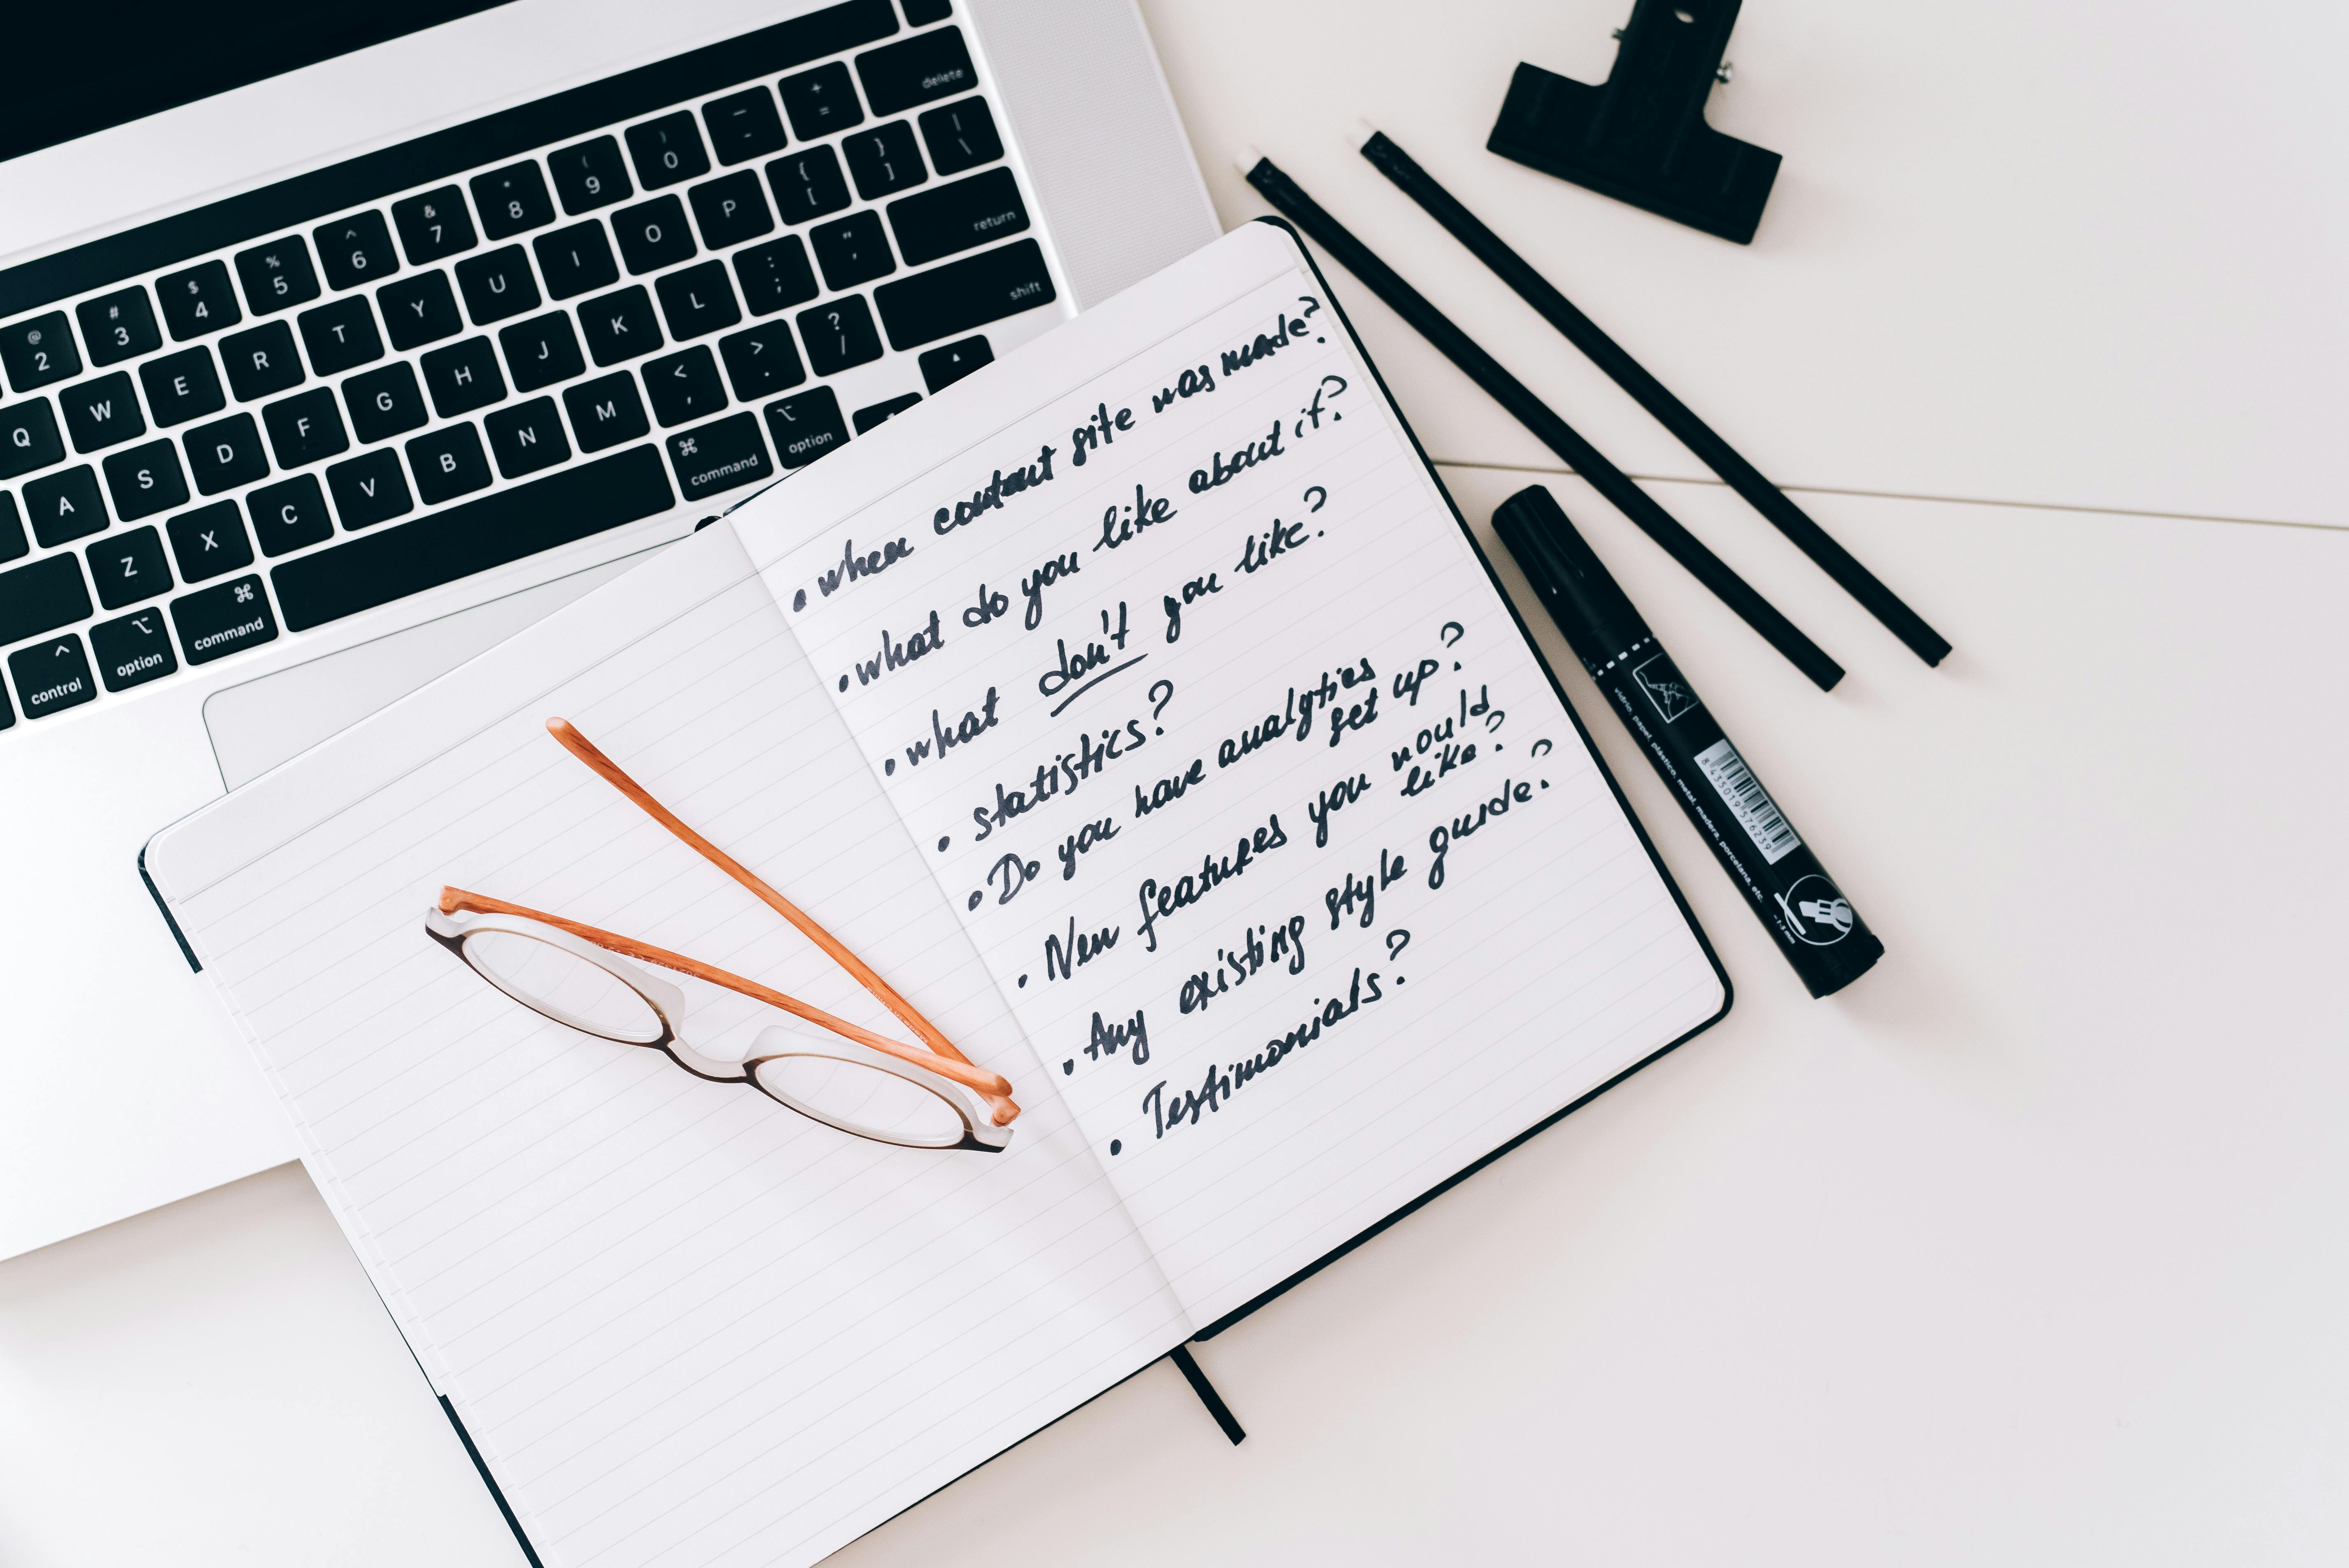 delete
+ =
_ -
) 0
( 9
* 8
& 7
^ 6
% 5
$ 4
# 3
@ 2
| \
} ]
{ [
P
O
I
U
Y
T
R
E
W
Q
return
" '
: ;
L
K
J
H
G
F
D
S
A
shift
? /
> .
< ,
M
N
B
V
C
X
Z
⌥ option
⌘ command
⌘ command
⌥ option
^ control
• when content site was made?
• what do you like about it?
• what don't you like?
• statistics?
• Do you have analytics
set up?
• New features you would
like?
• Any existing style guide?
• Testimonials?
vidrio, papel, plástico, metal, madera, porcelana, etc.
8 435019 576239